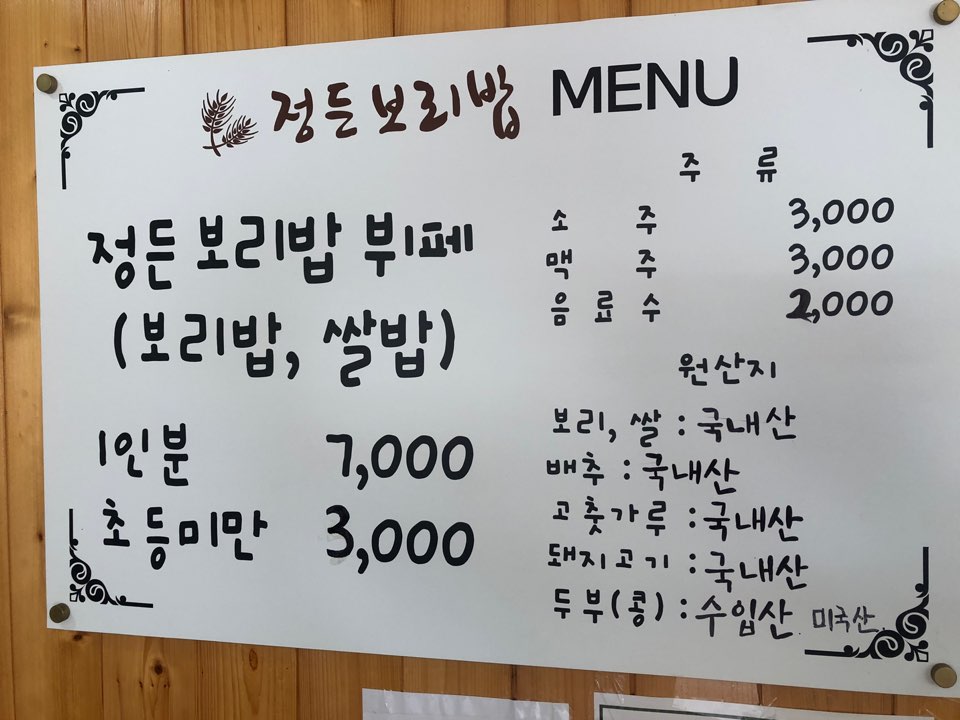 정든보리밥 MENU
정든 보리밥 뷔페
(보리밥, 쌀밥)
1인분 7,000
초등미만 3,000
주 류
소 주 3,000
맥 주 3,000
음 료 수 2,000
원산지
보리, 쌀 : 국내산
배추 : 국내산
고춧가루 : 국내산
돼지고기 : 국내산
두부(콩) : 수입산. 미국산.